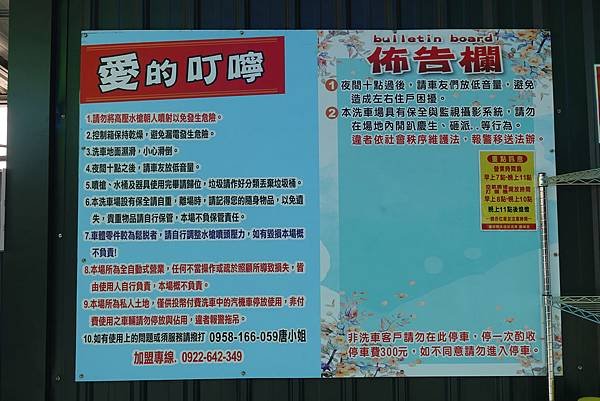 愛的叮嚀
1.請勿將高壓水槍朝人噴射以免發生危險。
2.控制箱保持乾燥，避免漏電發生危險。
3.洗車地面濕滑，小心滑倒。
4.夜間十點之後，請車友放低音量。
5.噴槍、水桶及器具使用完畢請歸位，垃圾請作好分類丟棄垃圾桶。
6.本洗車場設有保全請自重，離場時，請記得您的隨身物品，以免遺
失，貴重物品請自行保管，本場不負保管責任。
7.車體零件較為鬆脫者，請自行調整水槍噴頭壓力，如有毀損本場概
不負責!
8.本場所為全自動式營業，任何不當操作或疏於照顧所導致損失，皆
由使用人自行負責，本場概不負責。
9.本場所為私人土地，僅供投幣付費洗車中的汽機車停放使用，非付
費使用之車輛請勿停放與佔用，違者報警拖吊。
10.如有使用上的問題或須服務請撥打 0958-166-059唐小姐
加盟專線. 0922-642-349
bulletin board
佈告欄
1 夜間十點過後，請車友們放低音量，避免
造成左右住戶困擾。
2 本洗車場具有保全與監視攝影系統，請勿
在場地內開趴慶生、砸派..等行為。
違者依社會秩序維護法，報警移送法辦。
重點訊息
營業時間為
早上7點-晚上11點
開放時間
早上8點-晚上10點
晚上11點後熄燈
非洗車客戶請勿在此停車，停一次酌收
停車費300元，如不同意請勿進入停車。